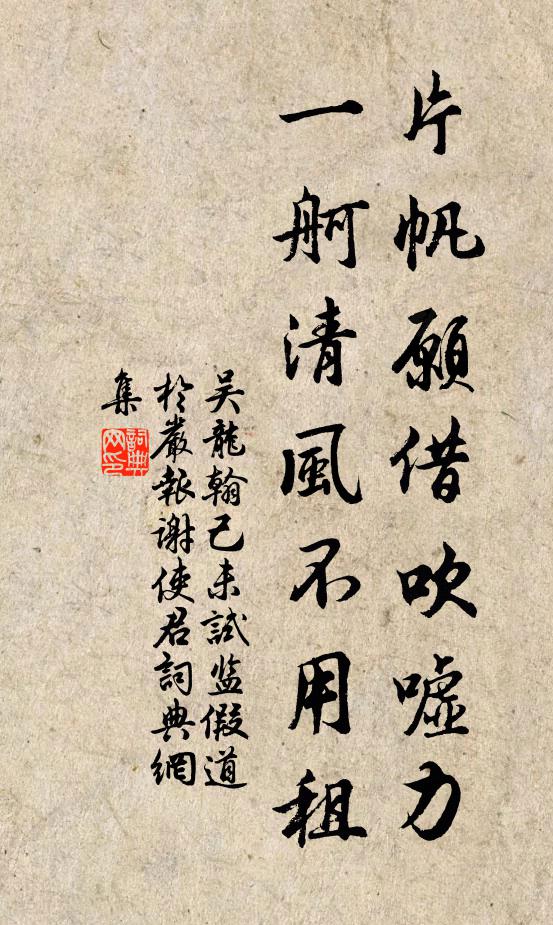 片帆願借吹噓力
一舸清風不用租
吴龍翰己未試监假道
於嚴報谢使君詞典網
集
詞典
网印